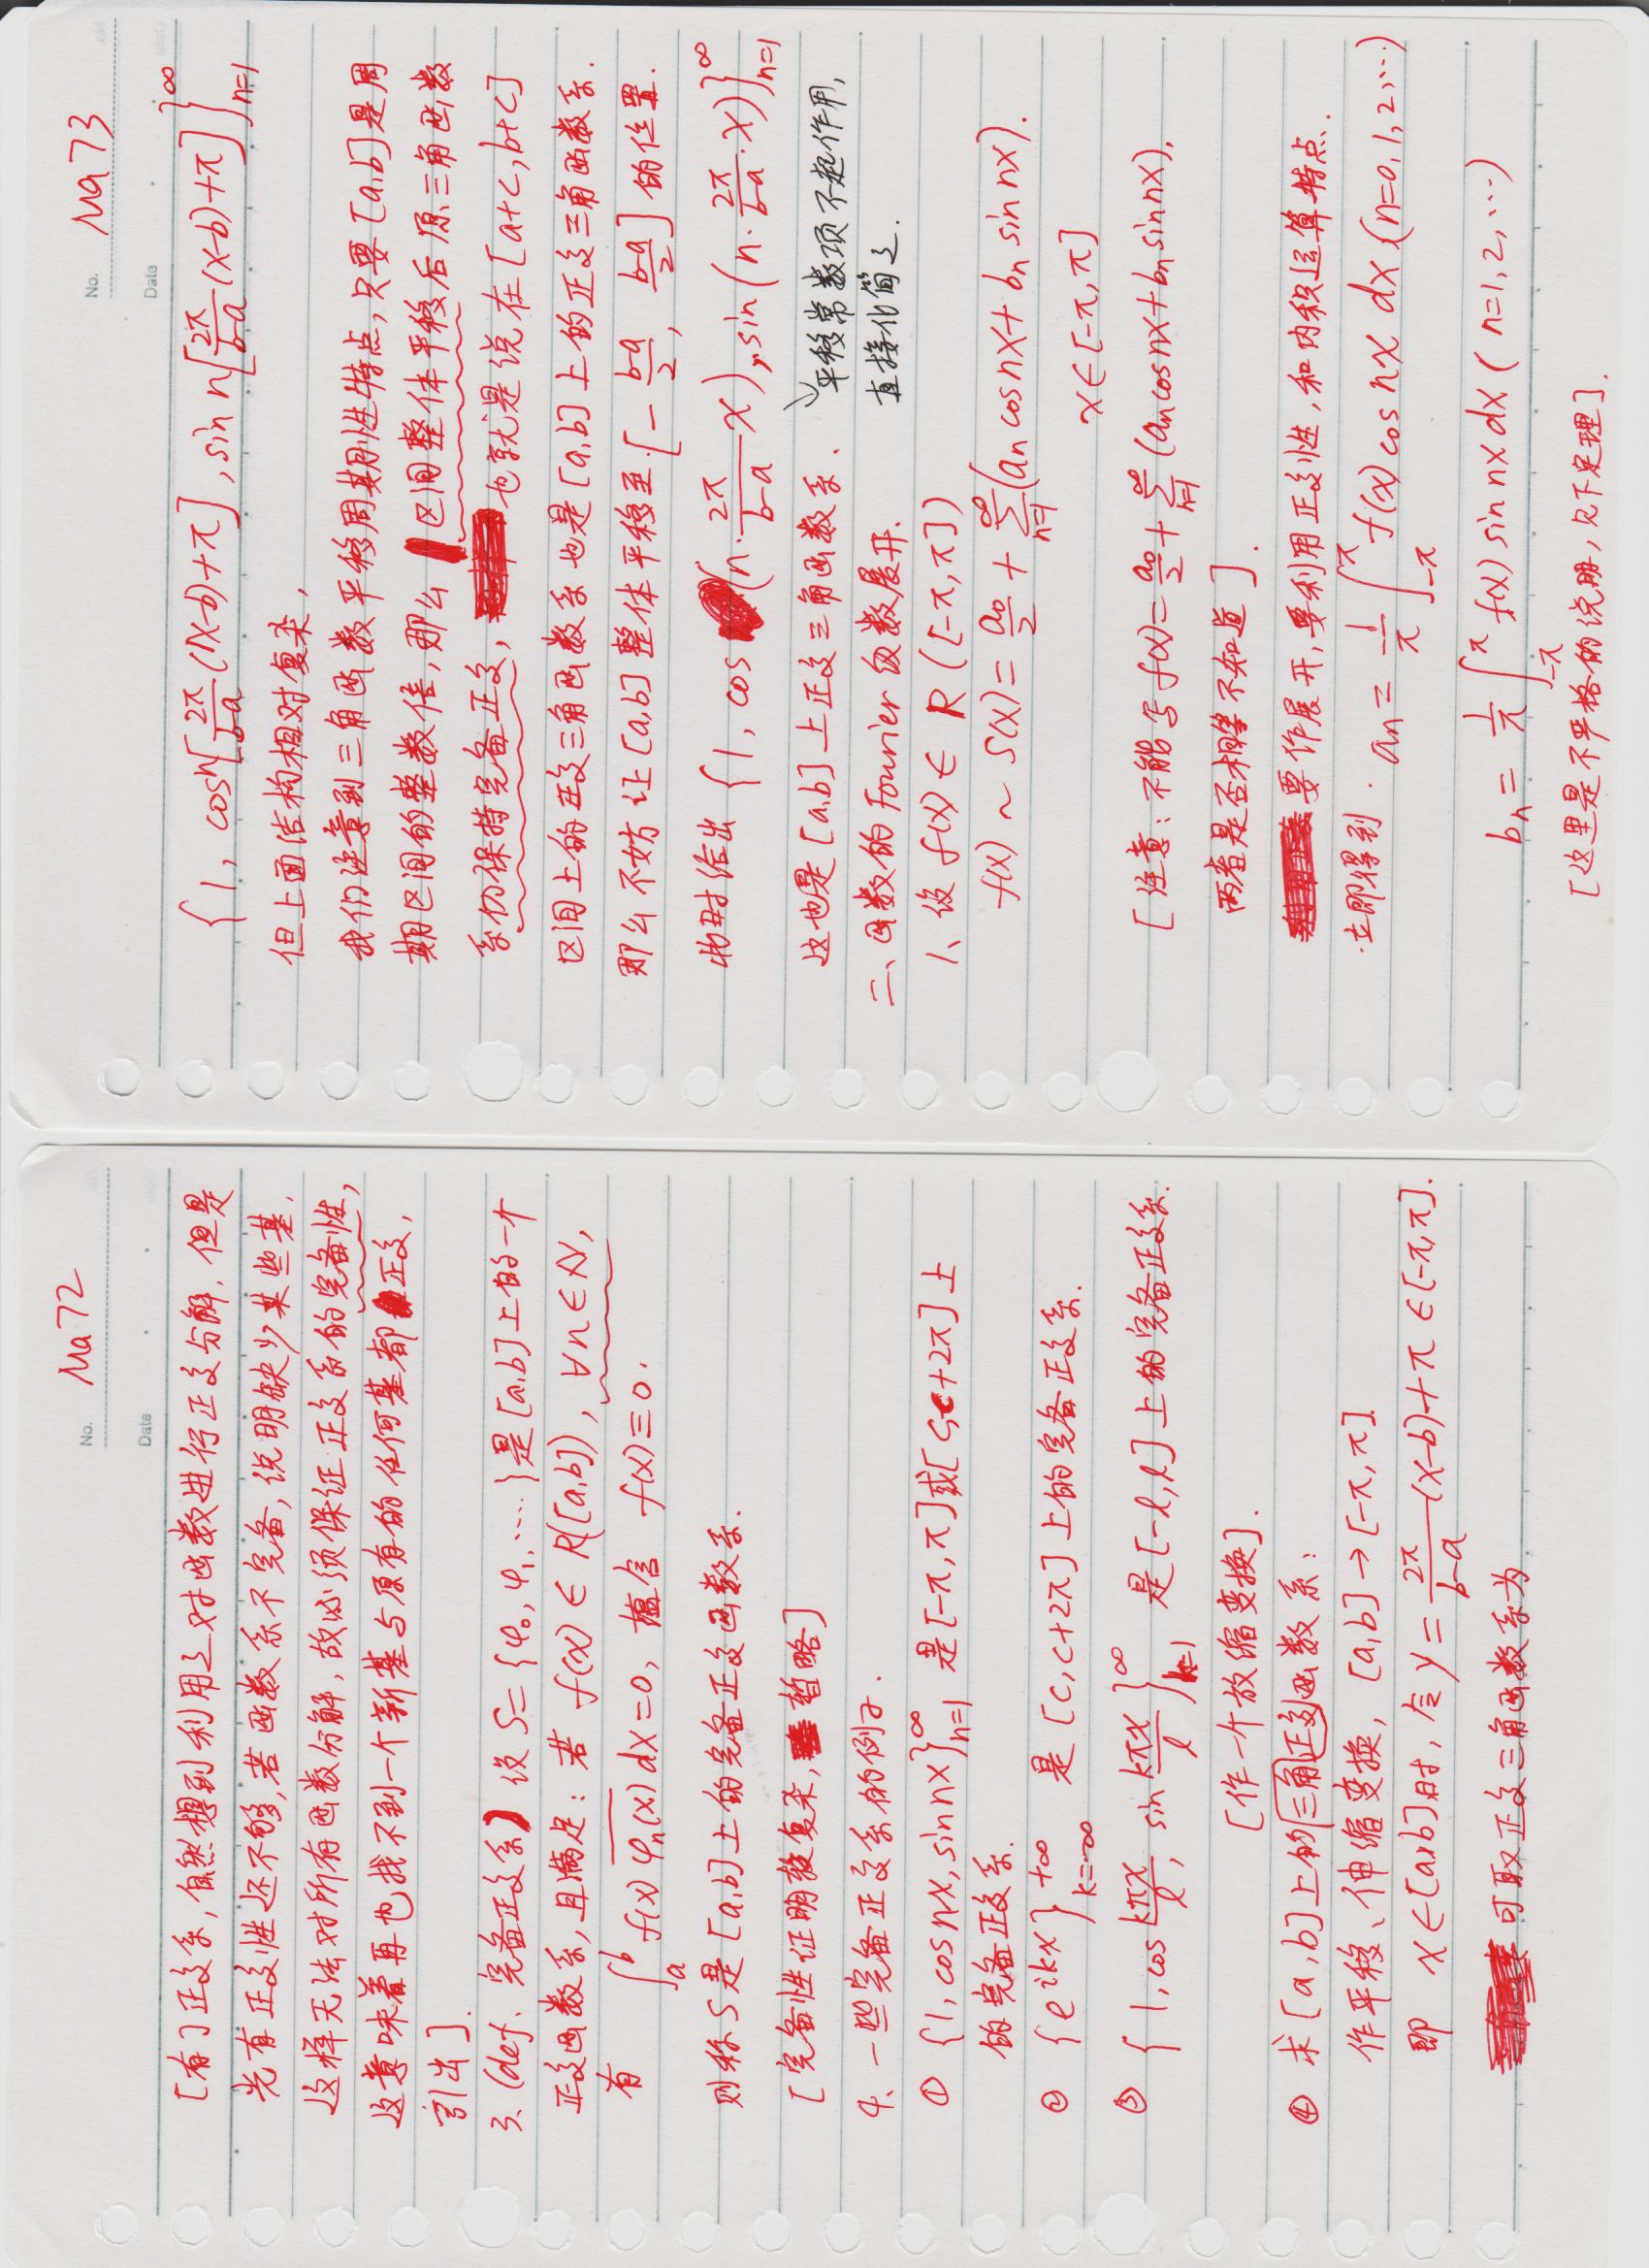 No. Ma72
Date
[有了正交系,自然想到利用之对函数进行正交分解,但是
光有正交性还不够,若函数系不完备,说明缺少某些基,
这样无法对所有函数分解,故必须保证正交系的完备性,
这意味着再也找不到一个新基与原有的任何基都正交,
引出].
3、(def. 完备正交系) 设 S={φ₀, φ₁, ....}是[a,b]上的一个
正交函数系,且满足: 若 f(x) ∈ R([a,b]), ∀n∈N,
有 ∫_a^b f(x) \overline{φ_n(x)} dx=0, 蕴含 f(x)≡0.
则称S是[a,b]上的完备正交函数系.
[完备性证明较复杂, 暂略]
4、一些完备正交系的例子.
① {1, cos nx, sin nx}_{n=1}^∞ 是[-π,π]或[c,c+2π]上
的完备正交系.
② {e^{ikx}}_{k=-∞}^{+∞} 是[c,c+2π]上的完备正交系.
③ {1, cos \frac{kπx}{l}, sin \frac{kπx}{l}}_{k=1}^∞ 是[-l,l]上的完备正交系.
[作一个放缩变换].
④ 求[a,b]上的三角正交函数系:
作平移、伸缩变换, [a,b]→[-π,π].
即 x∈[a,b]时, 令 y = \frac{2π}{b-a}(x-b)+π ∈[-π,π].
可取正交三角函数系为
No. Ma73
Date
{1, cos n[\frac{2π}{b-a}(x-b)+π], sin n[\frac{2π}{b-a}(x-b)+π]}_{n=1}^∞
但上面结构相对复杂,
我们注意到三角函数平移周期性特点,只要[a,b]是周
期区间的整数倍,那么区间整体平移后原三角函数
系仍保持完备正交, 也就是说在[a+c,b+c]
区间上的正交三角函数系也是[a,b]上的正交三角函数系.
那么不妨让[a,b]整体平移至[-\frac{b-a}{2}, \frac{b-a}{2}]的位置.
此时给出 {1, cos(n·\frac{2π}{b-a}x), sin(n·\frac{2π}{b-a}·x)}_{n=1}^∞
这也是[a,b]上正交三角函数系.
↘平移常数项不起作用,
直接化简之.
二、函数的Fourier级数展开.
1、设 f(x) ∈ R([-π,π])
f(x) ~ S(x) = \frac{a₀}{2} + \sum_{n=1}^∞(a_n cos nx + b_n sin nx).
x∈[-π,π]
[注意: 不能写 f(x)=\frac{a₀}{2}+\sum_{n=1}^∞(a_n cos nx+b_n sin nx),
两者是否相等不知道].
要作展开,要利用正交性,和内积运算特点.
立即得到. a_n = \frac{1}{π}∫_{-π}^{π} f(x) cos nx dx (n=0,1,2,...)
b_n = \frac{1}{π}∫_{-π}^{π} f(x) sin nx dx (n=1,2,...)
[这里是不严格的说明,见下定理].